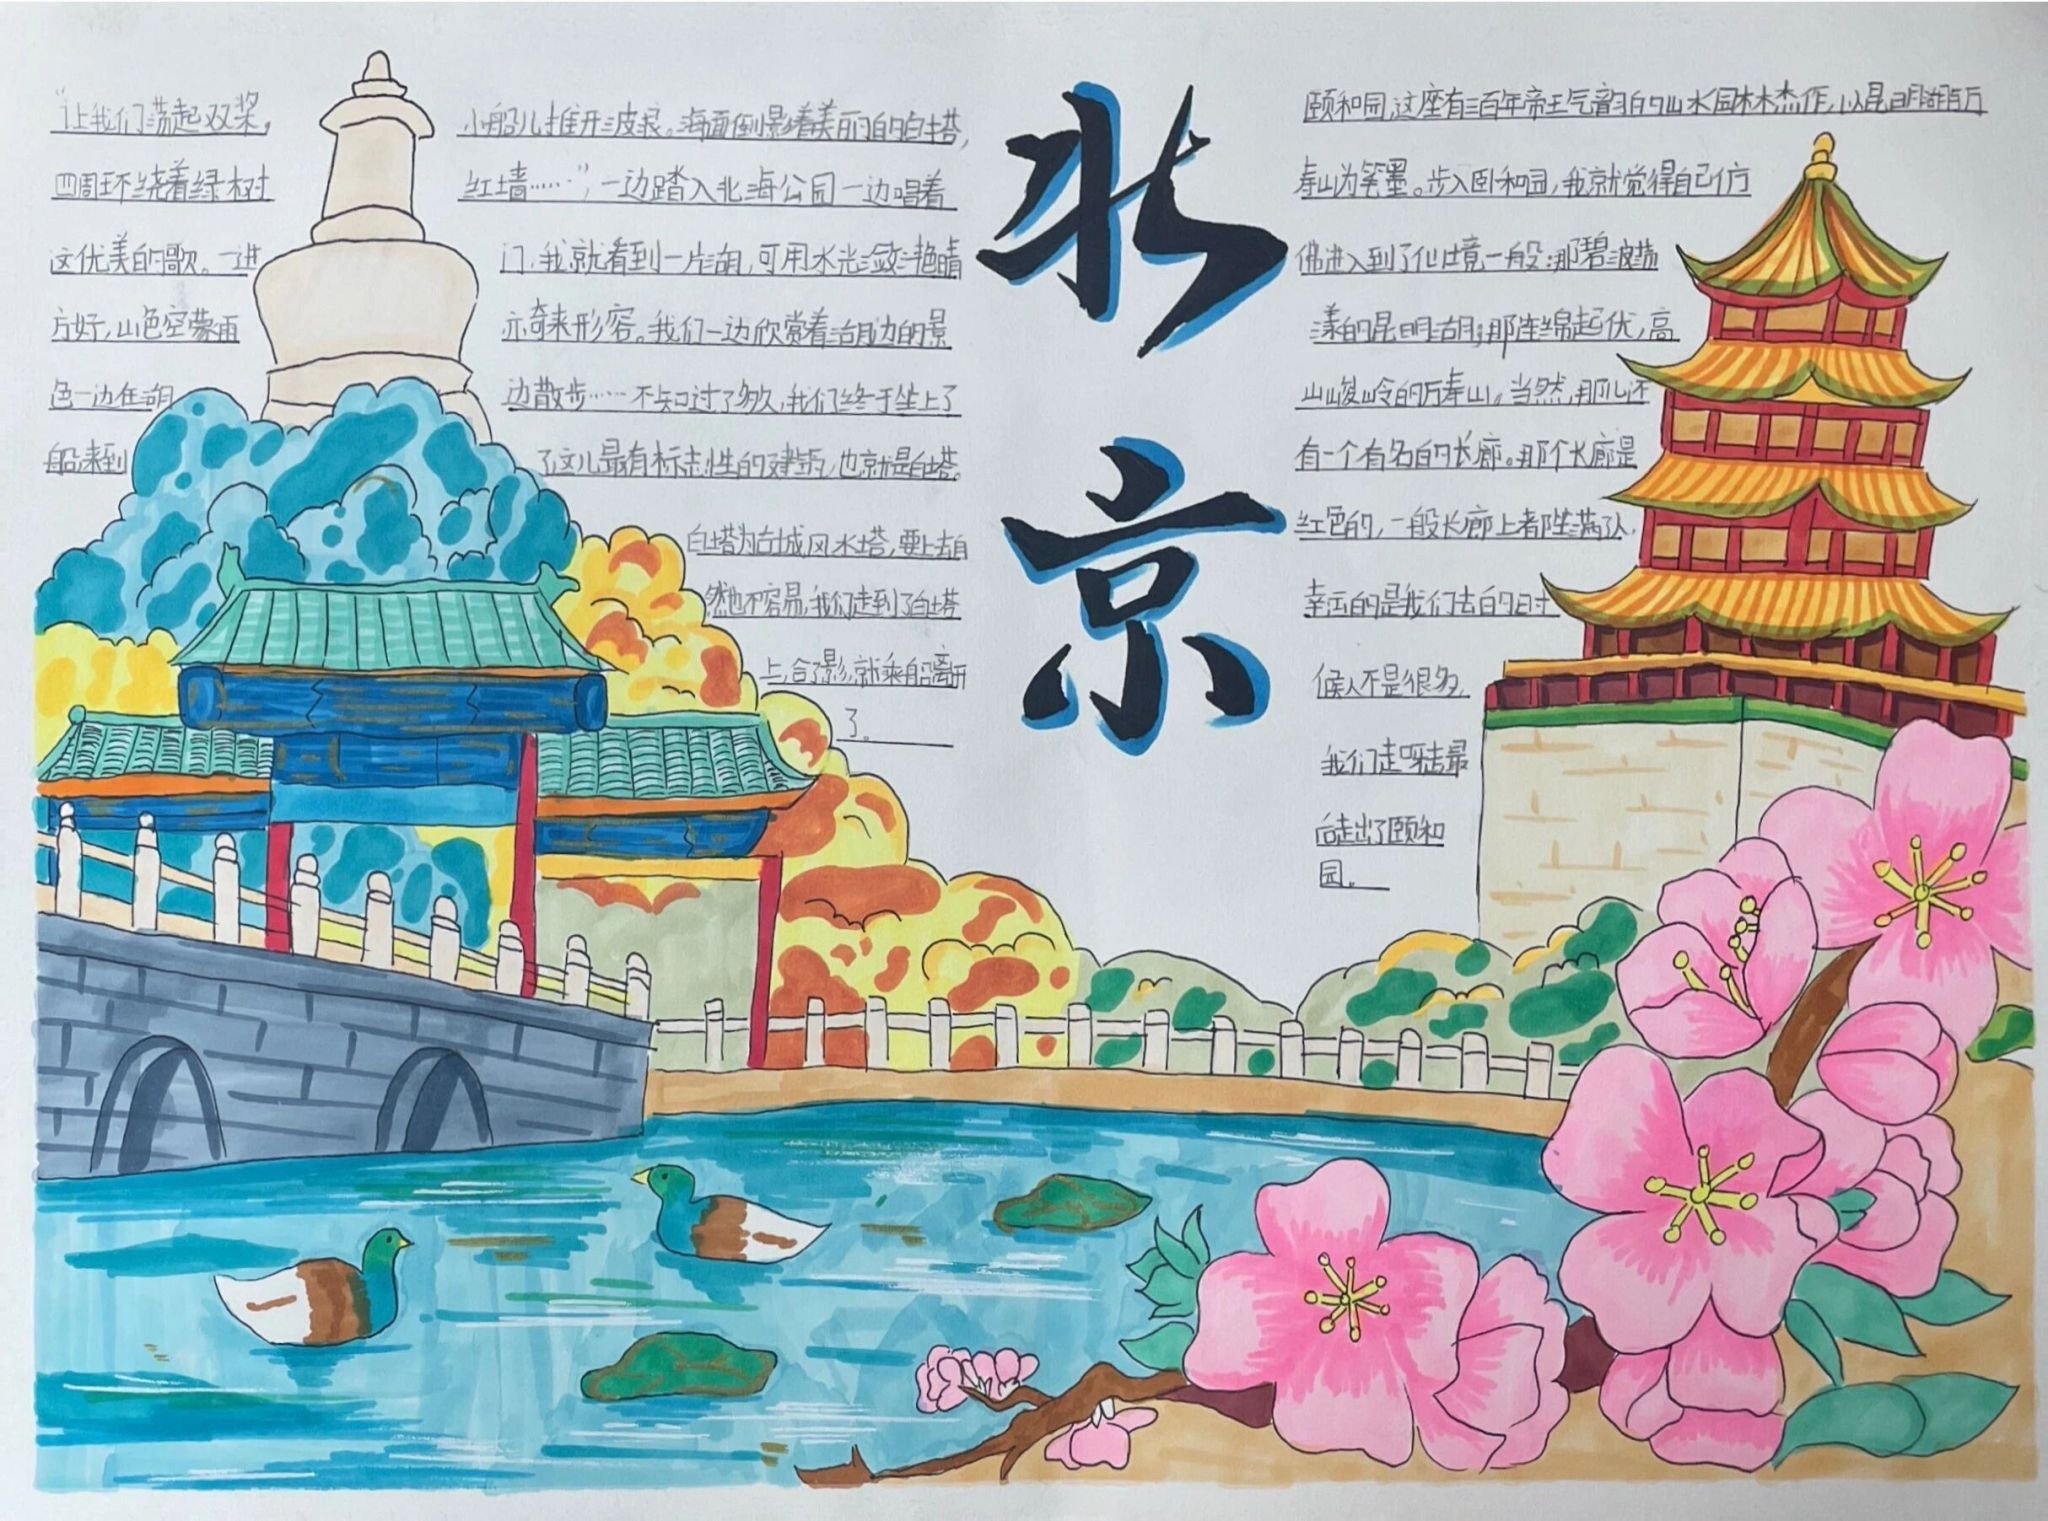 “让我们荡起双桨，小船儿推开波浪。海面倒影着美丽的白塔，
四周环绕着绿树红墙……”，一边踏入北海公园一边唱着
这优美的歌。一进门，我就看到一片湖，可用水光潋滟晴
方好，山色空蒙雨亦奇来形容。我们一边欣赏着湖边的景
色一边在湖边散步……不知过了多久，我们终于坐上了
船来到了这儿最有标志性的建筑，也就是白塔。
白塔为古城风水塔，要上去自
然也不容易，我们走到了白塔
上，合了影，就乘船离开
了。
北
京
颐和园，这座有三百年帝王气韵的山水园林杰作，以昆明湖与万
寿山为笔墨。步入颐和园，我就觉得自己仿
佛进入到了仙境一般：那碧波荡
漾的昆明湖；那连绵起伏，高
山峻岭的万寿山。当然，那儿还
有一个有名的长廊。那个长廊是
红色的，一般长廊上都坐满了人，
幸运的是我们去的时
候人不是很多，
我们走呀走最
后走出了颐和
园。